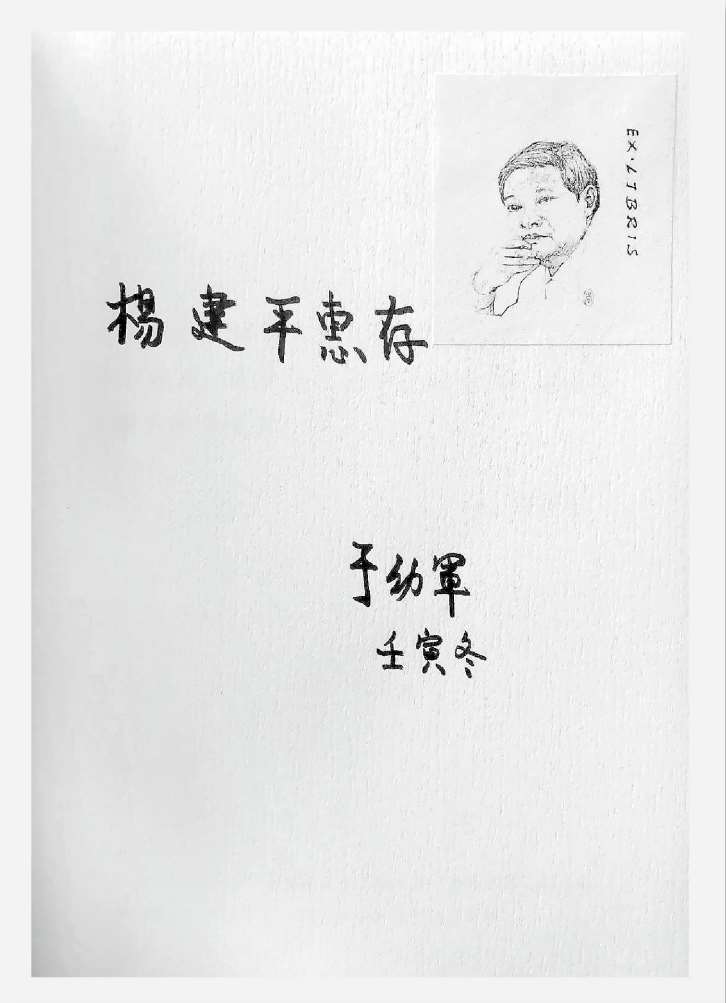 EX·LIBRIS
楊建平惠存
于幼軍
壬寅冬